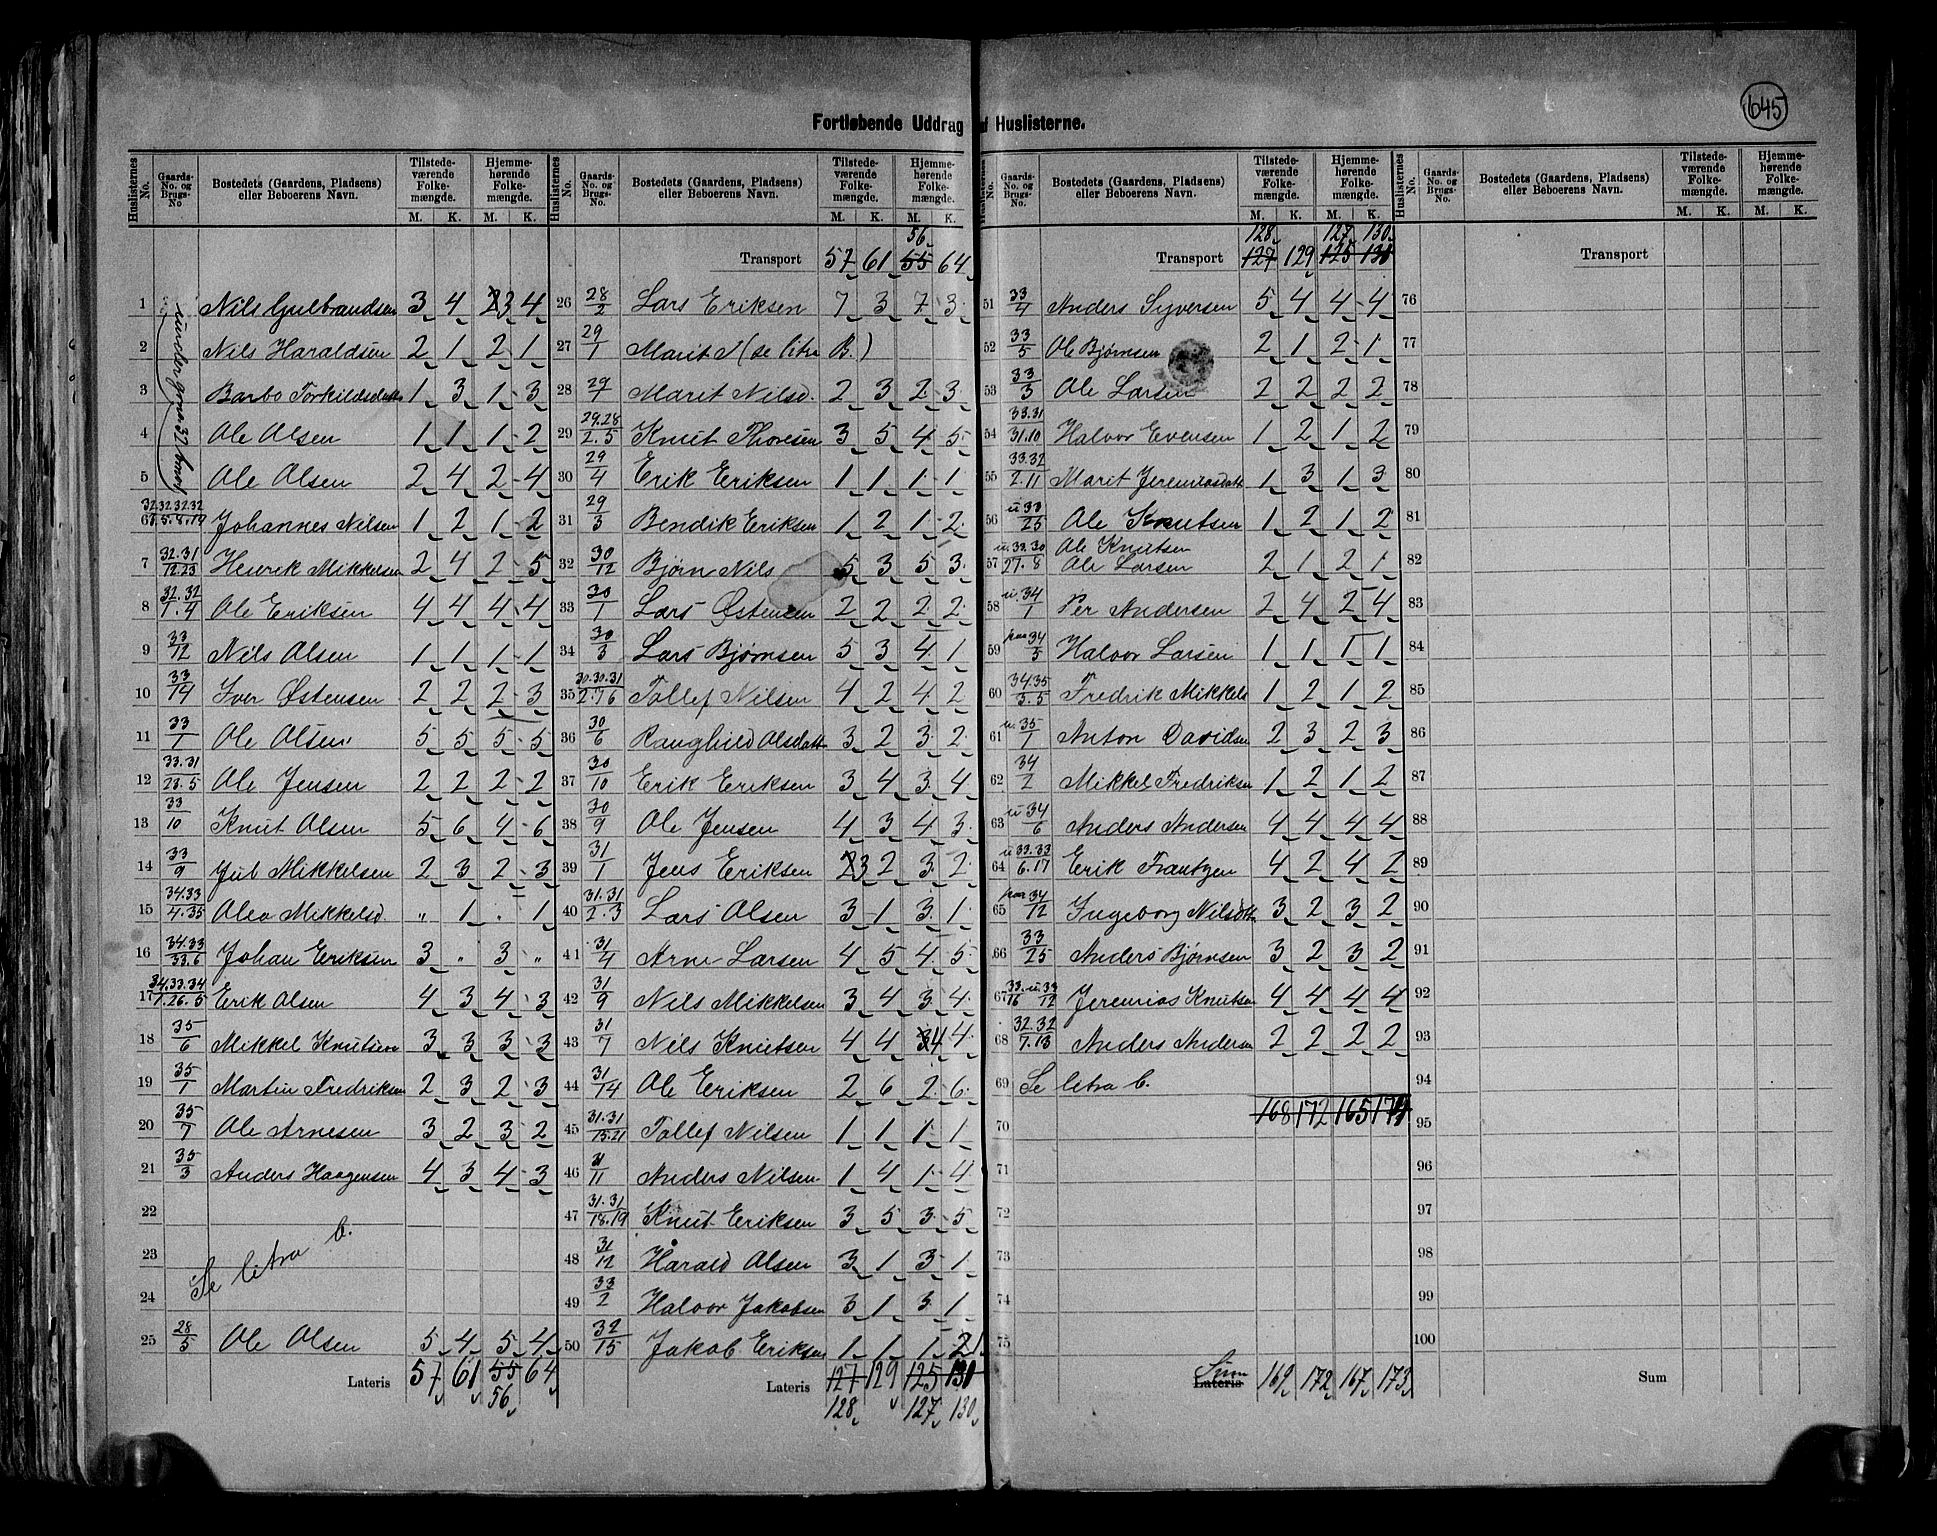 645
Fortløbende Uddrag af Huslisterne.
Huslisternes No. Gaards-No. og Brugs-No Bostedets (Gaardens, Pladsens) eller Beboerens Navn. Tilstedeværende Folkemængde. M. K. Hjemmehørende Folkemængde. M. K.
under Gnо 32 bnо 1
1 Nils Gulbrandsen 3 4 3 4
2 Nils Haraldsen 2 1 2 1
3 Barbo Torkildsdatt 1 3 1 3
4 Ole Olsen 1 1 1 2
5 Ole Olsen 2 4 2 4
6 Johannes Nilsen 1 2 1 2
7 32.31/12.23 Henrik Mikkelsen 2 4 2 5
8 32.32/1.4 Ole Eriksen 4 4 4 4
9 33/12 Nils Olsen 1 1 1 1
10 33/14 Iver Østensen 2 2 2 3
11 33/1 Ole Olsen 5 5 5 5
12 33.31/23.5 Ole Jensen 2 2 2 2
13 33/10 Knut Olsen 5 6 4 6
14 33/9 Jul Mikkelsen 2 3 2 3
15 34.33/4.35 Olea Mikkelsd. " 1 " 1
16 34.33/33.6 Johan Eriksen 3 " 3 "
17 34.33.34/1.26.5 Erik Olsen 4 3 4 3
18 35/6 Mikkel Knutsen 3 3 3 3
19 35/1 Martin Fredriksen 2 3 2 3
20 35/7 Ole Arnesen 3 2 3 2
21 35/3 Anders Haagensen 4 3 4 3
22
23 Se litra C.
24
25 28/5 Ole Olsen 5 4 5 4
Lateris 57 61 55 64
56
Huslisternes No. Gaards-No. og Brugs-No. Bostedets (Gaardens, Pladsens) eller Beboerens Navn. Tilstedeværende Folkemængde. M. K. Hjemmehørende Folkemængde. M. K.
56
Transport 57 61 55 64
26 28/2 Lars Eriksen 7 3 7 3
27 29/1 Marit (se litra B.)
28 29/1 Marit Nilsd. 2 3 2 3
29 29.28/2.5 Knut Thoresen 3 5 4 5
30 29/4 Erik Eriksen 1 1 1 1
31 29/3 Bendik Eriksen 1 2 1 2
32 30/12 Bjørn Nils 5 3 5 3
33 30/1 Lars Østensen 2 2 2 2
34 30/3 Lars Bjørnsen 5 3 4 1
35 30.30.31/2.7.6 Tollef Nilsen 4 2 4 2
36 30/6 Ranghild Olsdatt 3 2 3 2
37 30/10 Erik Eriksen 3 4 3 4
38 30/9 Ole Jensen 4 3 4 3
39 31/1 Jens Eriksen 3 2 3 2
40 31.31/2.3 Lars Olsen 3 1 3 1
41 31/4 Arne Larsen 4 5 4 5
42 31/9 Nils Mikkelsen 3 4 3 4
43 31/7 Nils Knutsen 4 4 4 4
44 31/14 Ole Eriksen 2 6 2 6
45 31.31/15.21 Tollef Nilsen 1 1 1 1
46 31/11 Anders Nilsen 1 4 1 4
47 31.31/18.19 Knut Eriksen 3 5 3 5
48 31/12 Harald Olsen 3 1 3 1
49 33/2 Halvor Jakobsen 3 1 3 1
50 32/15 Jakob Eriksen 1 1 1 1
Lateris 127 129 125 131
128 127 130
No. Gaards-No. og Brugs-No. Bostedets (Gaardens, Pladsens) eller Beboerens Navn. Tilstedeværende Folkemængde. M. K. Hjemmehørende Folkemængde. M. K.
128 127 130
Transport 127 129 125 131
51 33/4 Anders Syversen 5 4 4 4
52 33/5 Ole Bjørnsen 2 1 2 1
53 33/3 Ole Larsen 2 2 2 2
54 33.31/31.10 Halvor Evensen 1 2 1 2
55 33.32/2.11 Marit Jeremiasdatt 1 3 1 3
56 u 33/25 Ole Knutsen 1 2 1 2
57 u. 33.30/27.8 Ole Knutsen Ole Larsen 2 1 2 1
58 u. 34/1 Per Andersen 2 4 2 4
59 paa 34/5 Halvor Larsen 1 1 1 1
60 34.35/3.5 Fredrik Mikkels 1 2 1 2
61 u. 35/1 Anton Davidsen 2 3 2 3
62 34/2 Mikkel Fredriksen 1 2 1 2
63 u 34/6 Anders Andersen 4 4 4 4
64 u 33.33/6.17 Erik Frantzen 4 2 4 2
65 paa 34/12 Ingeborg Nilsdtr 3 2 3 2
66 33/25 Anders Bjørnsen 3 2 3 2
67 33. u. 33/16 12 Jeremias Knutsen 4 4 4 4
68 32.32/7.13 Anders Andersen 2 2 2 2
69 Se litra C.
168 172 165 174
70
71
72
73
74
75
Sum Lateris 169 172 167 173
Huslisternes No. Gaards-No. og Brugs-No. Bostedets (Gaardens, Pladsens) eller Beboerens Navn. Tilstedeværende Folkemængde. M. K. Hjemmehørende Folkemængde. M. K.
Transport
76
77
78
79
80
81
82
83
84
85
86
87
88
89
90
91
92
93
94
95
96
97
98
99
100
Sum